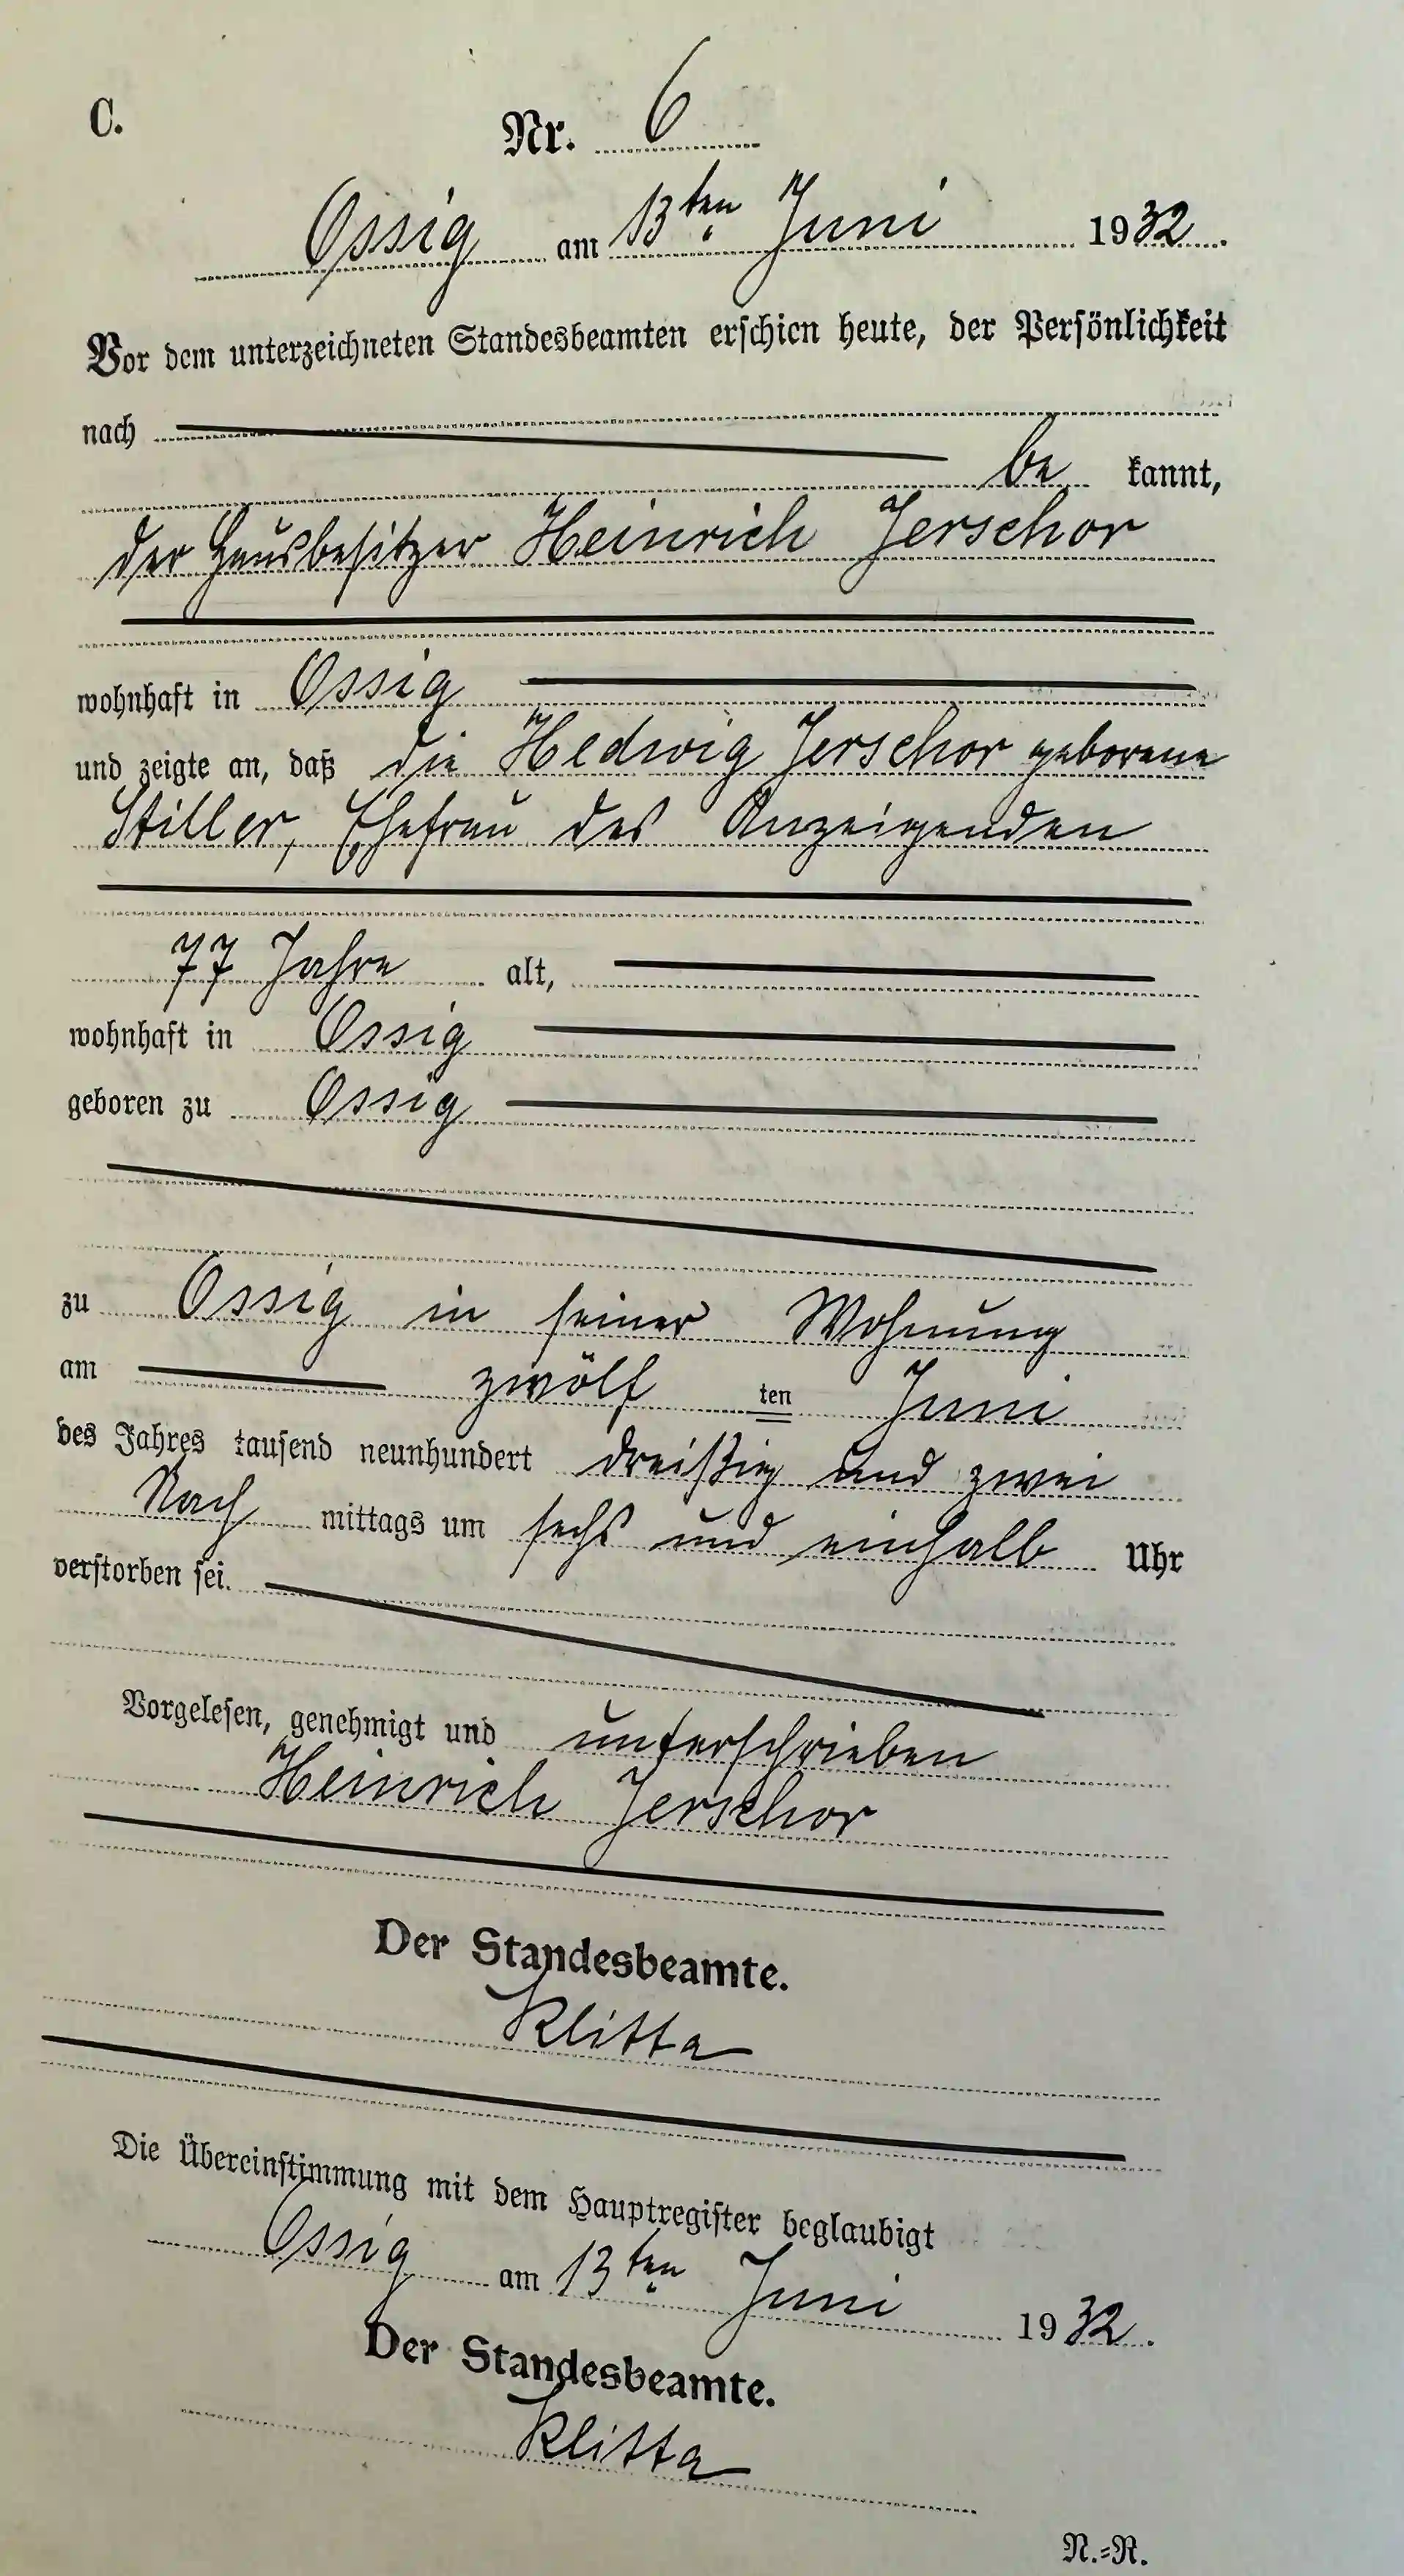 C.
Nr. 6
Ossig am 13ten Juni 1932.
Vor dem unterzeichneten Standesbeamten erschien heute, der Persönlichkeit
nach
be kannt,
der Hausbesitzer Heinrich Jerschor
wohnhaft in Ossig
und zeigte an, daß die Hedwig Jerschor geborene
Stiller, Ehefrau des Anzeigenden
77 Jahre alt,
wohnhaft in Ossig
geboren zu Ossig
zu Ossig in seiner Wohnung
am zwölf ten Juni
des Jahres tausend neunhundert dreißig und zwei
Nach mittags um sechs und einhalb Uhr
verstorben sei.
Vorgelesen, genehmigt und unterschrieben
Heinrich Jerschor
Der Standesbeamte.
Klitta
Die Übereinstimmung mit dem Hauptregister beglaubigt
Ossig am 13ten Juni 1932.
Der Standesbeamte.
Klitta
N.=R.